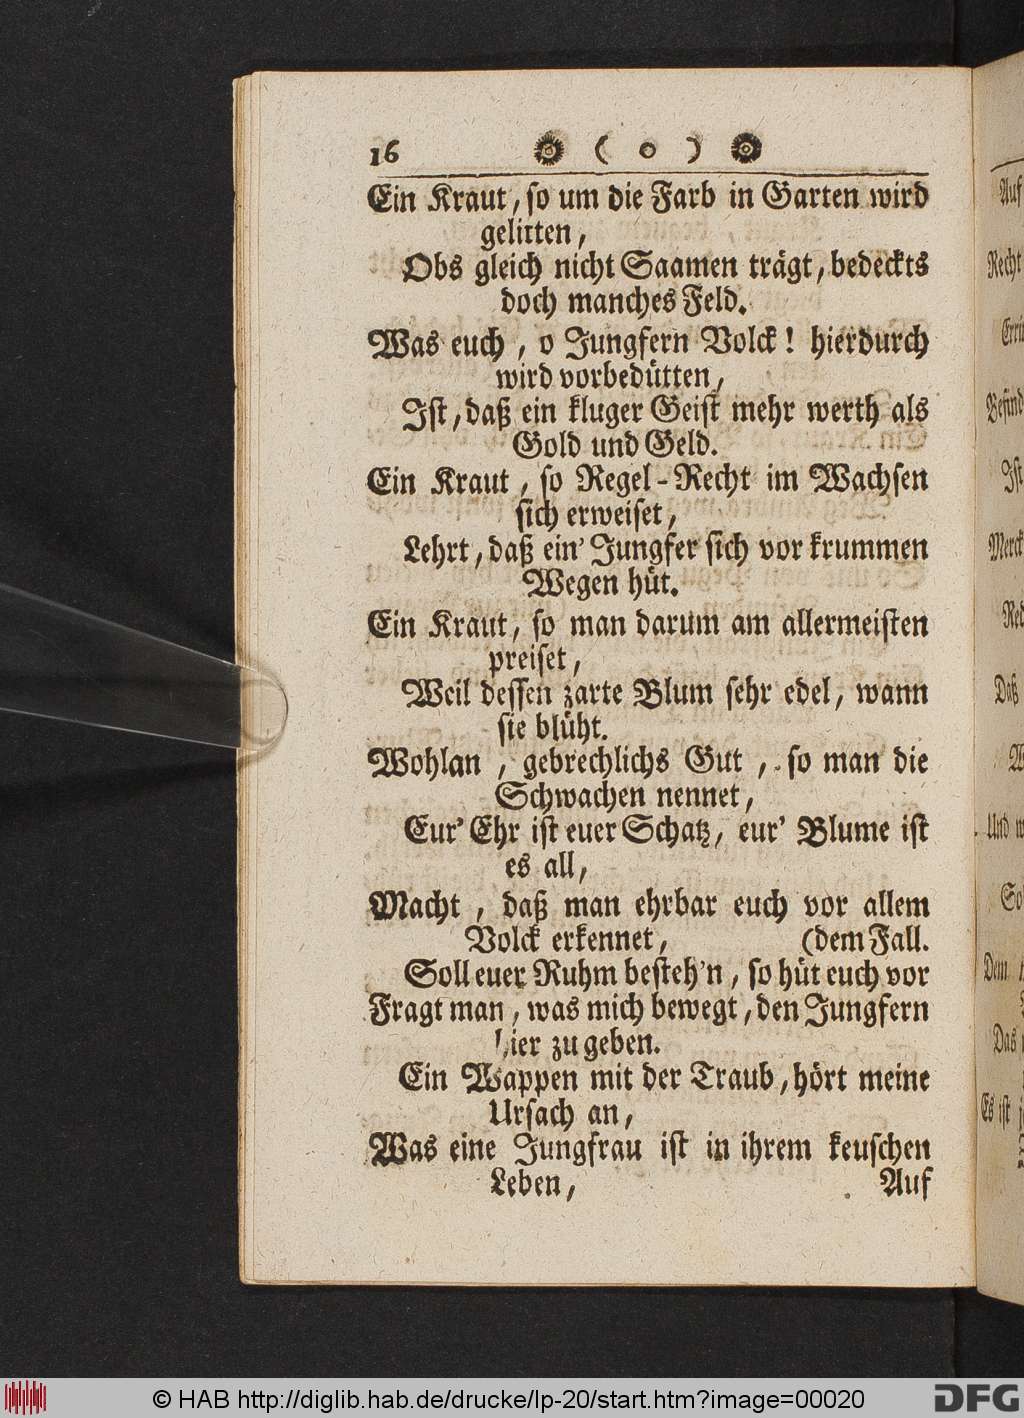 16 ( o )
Ein Kraut, so um die Farb in Garten wird
gelitten,
Obs gleich nicht Saamen trägt, bedeckts
doch manches Feld.
Was euch, o Jungfern Volck! hierdurch
wird vorbedütten,
Ist, daß ein kluger Geist mehr werth als
Gold und Geld.
Ein Kraut, so Regel-Recht im Wachsen
sich erweiset,
Lehrt, daß ein' Jungfer sich vor krummen
Wegen hüt.
Ein Kraut, so man darum am allermeisten
preiset,
Weil dessen zarte Blum sehr edel, wann
sie blüht.
Wohlan, gebrechlichs Gut, so man die
Schwachen nennet,
Eur' Ehr ist euer Schatz, eur' Blume ist
es all,
Macht, daß man ehrbar euch vor allem
Volck erkennet, (dem Fall.
Soll euer Ruhm besteh'n, so hüt euch vor
Fragt man, was mich bewegt, den Jungfern
hier zu geben.
Ein Wappen mit der Traub, hört meine
Ursach an,
Was eine Jungfrau ist in ihrem keuschen
Leben, Auf
Auf
Recht
Befind
Ist
Merck
Red
Daß
Und w
So
Dem
Das
Es ist
© HAB http://diglib.hab.de/drucke/lp-20/start.htm?image=00020
DFG